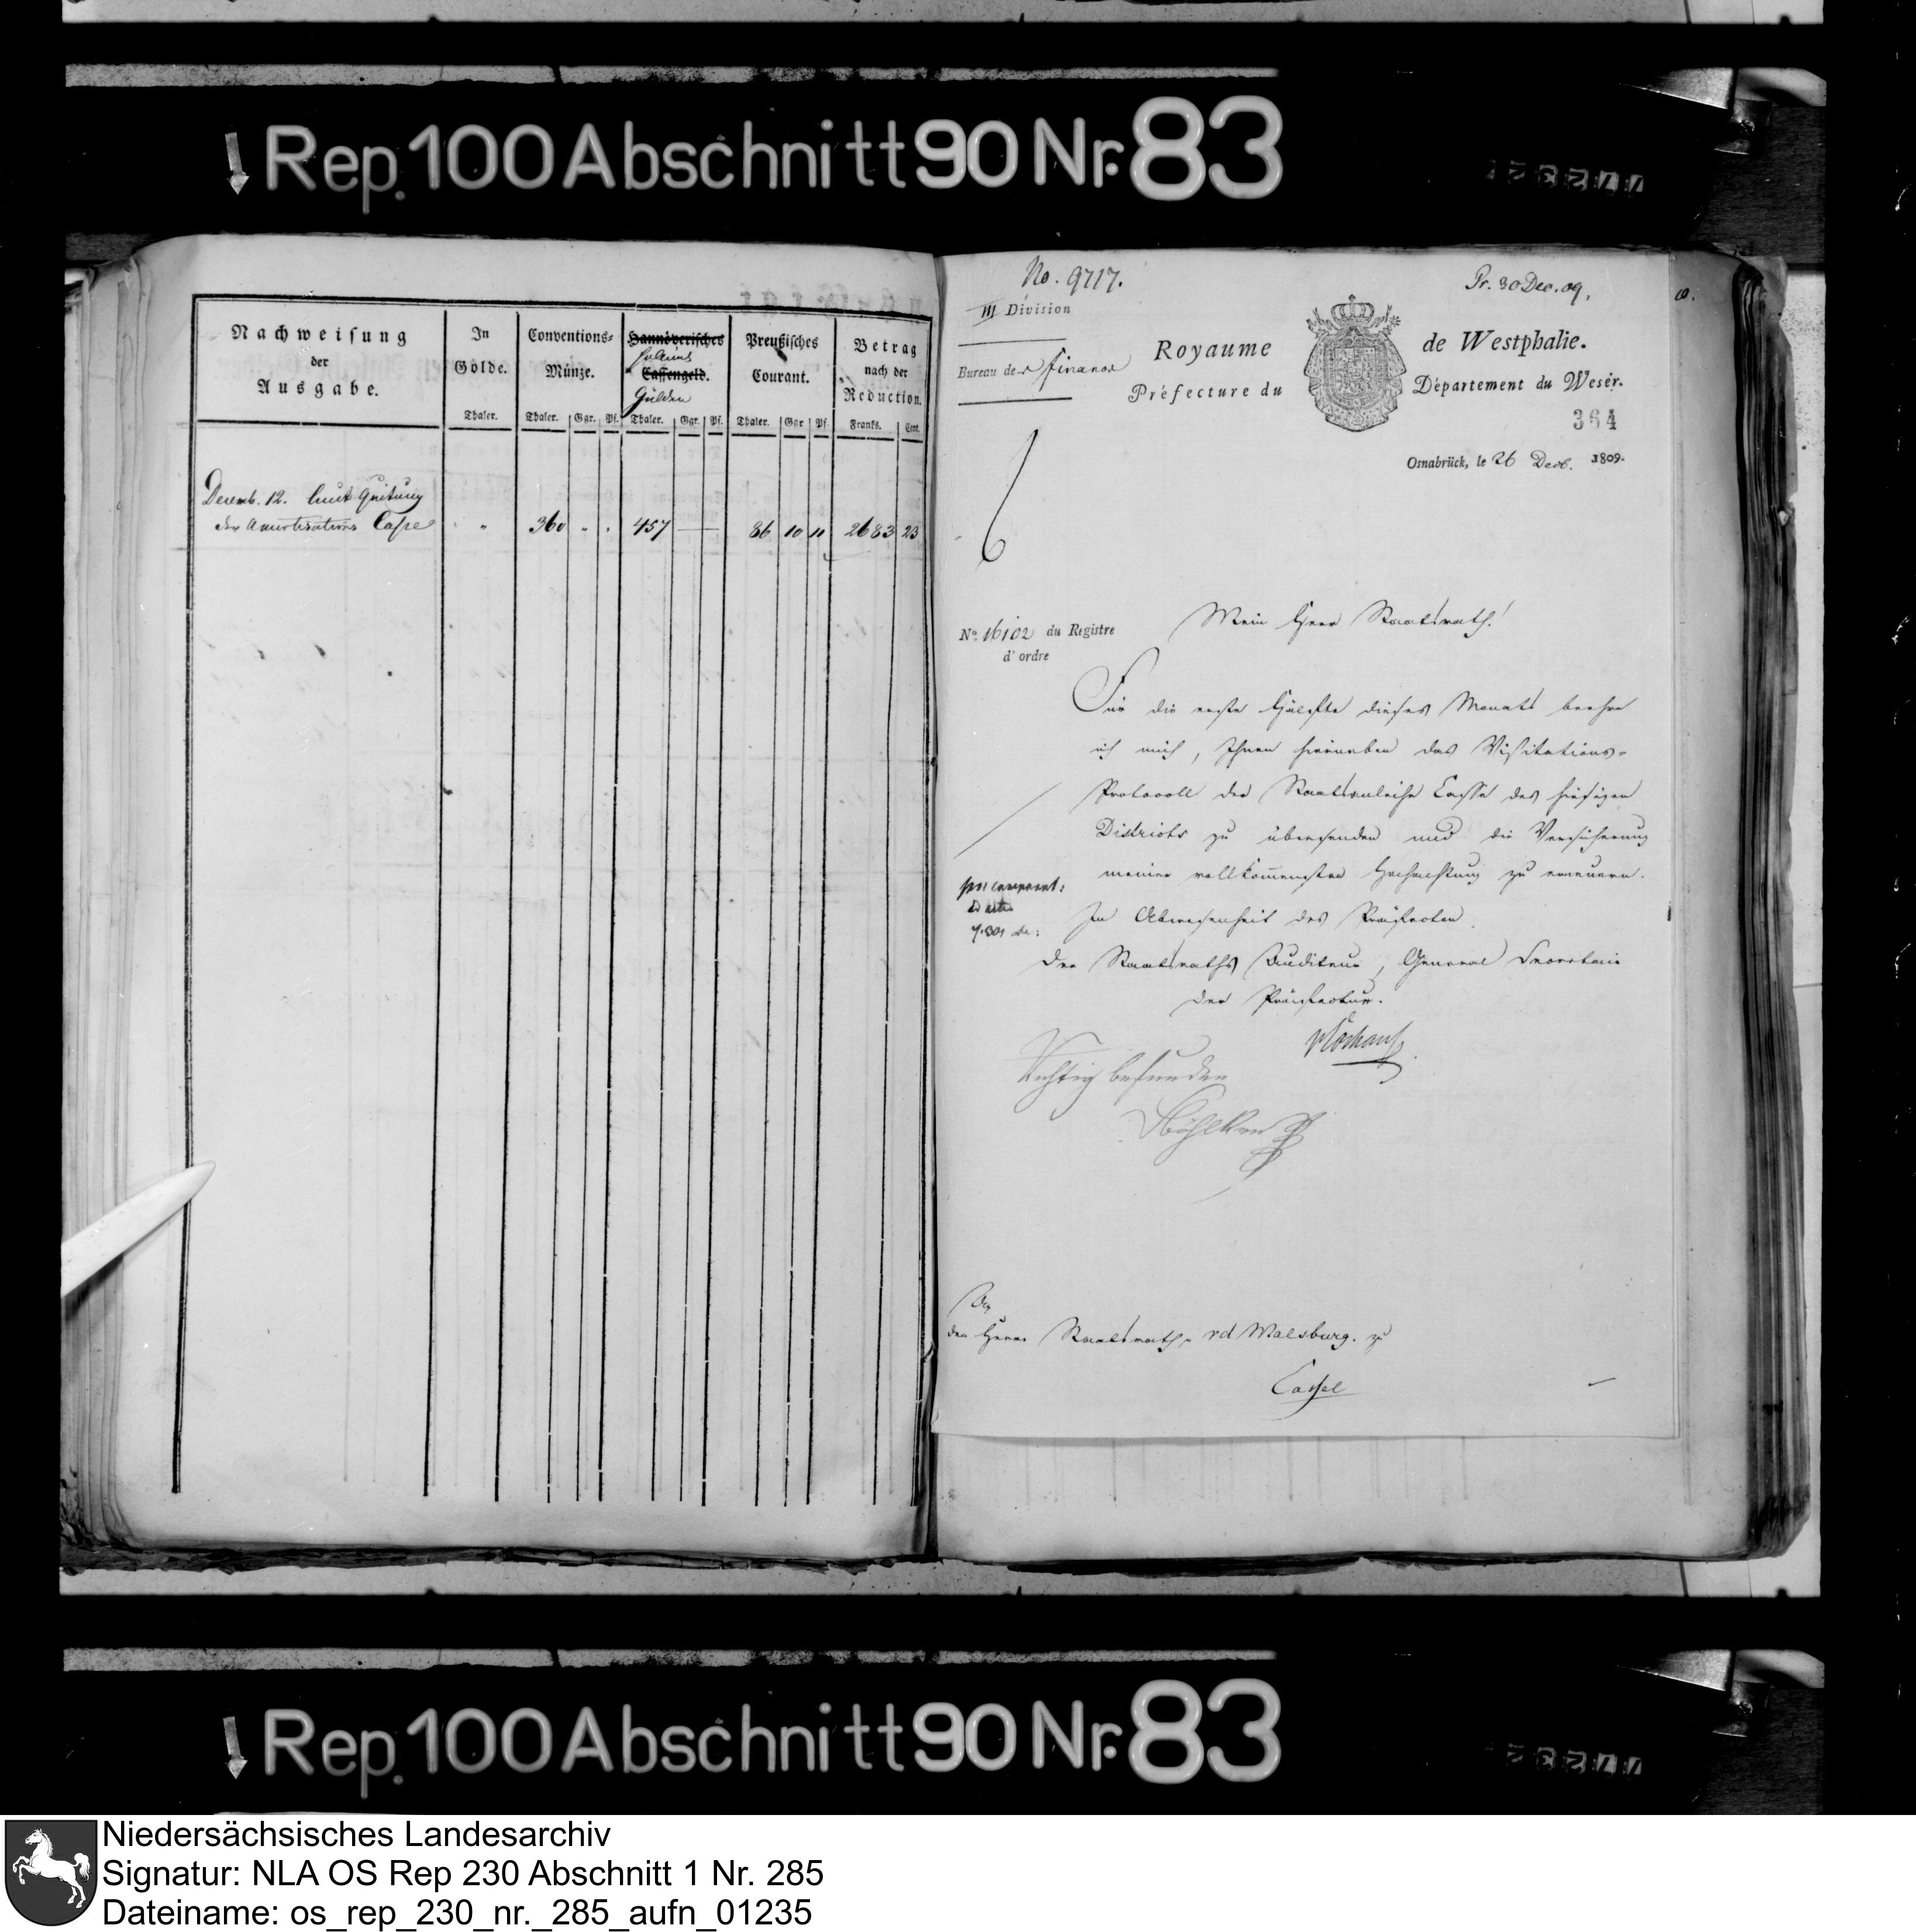 Rep. 100 Abschnitt 90 Nr. 83
Nachweisung
der
Ausgabe.
In
Golde.
Thaler.
Conventions-
Münze.
Thaler. Ggr. Pf.
Hannöverisches
Cassengeld.
Gulden
Thaler. Ggr. Pf.
Preußisches
Courant.
Thaler. Ggr Pf
Betrag
nach der
Reduction.
Franks. Cent.
Decemb. 12. laut Quitung
der Amortisations Casse " 360 " " 457 — 86 10 11 2683 23
No. 9717.
Pr. 30 Dec. 09.
III Division
Bureau der Finance
Royaume de Westphalie.
Préfecture du Département du Weser.
364
Osnabrück, le 26 Decb. 1809.
No. 16102 du Registre
d'ordre
Mein Herr Staatsrath!
Für die erste Hälfte dieses Monats beehre
ich mich, Ihnen hierneben das Visitations-
Protocoll der Staatsanleihe Casse des hiesigen
Districts zu übersenden und die Versicherung
meiner vollkommensten Hochachtung zu erneuern.
In Abwesenheit des Präfecten
Der Staatsraths Auditeur, General Secretair
der Präfectur.
Richtig befunden
An
den Herrn Staatsrath vd Malsburg. zu
Cassel
Rep. 100 Abschnitt 90 Nr. 83
Niedersächsisches Landesarchiv
Signatur: NLA OS Rep 230 Abschnitt 1 Nr. 285
Dateiname: os_rep_230_nr._285_aufn_01235